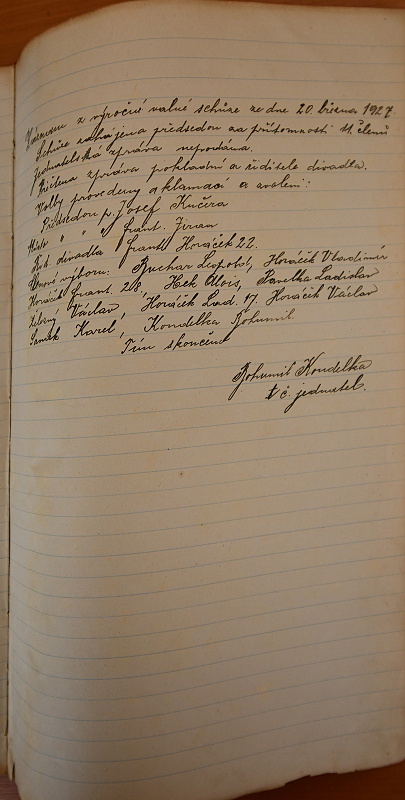 Záznam z výročné valné schůze ze dne 20. března 1927.
Schůze zahájena předsedou za přítomnosti 11. členů
Jednatelská zpráva nepodána.
Přičtena zpráva pokladní a ředitele divadla.
Volby provedeny aklamací a zvoleni:
Předsedou p. Josef Kučera
Místo " " Frant. Jirran
Řed. divadla Frant. Horáček 22.
Členové výboru: Buchar Leopold, Horáček Vladimír
Horáček Frant. 28, Hek Alois, Pavelka Ladislav
Železný Václav, Horáček Lad. 17. Horáček Václav
Karel, Koudelka Bohumil.
Tím skončeno
Bohumil Koudelka
t č. jednatel.